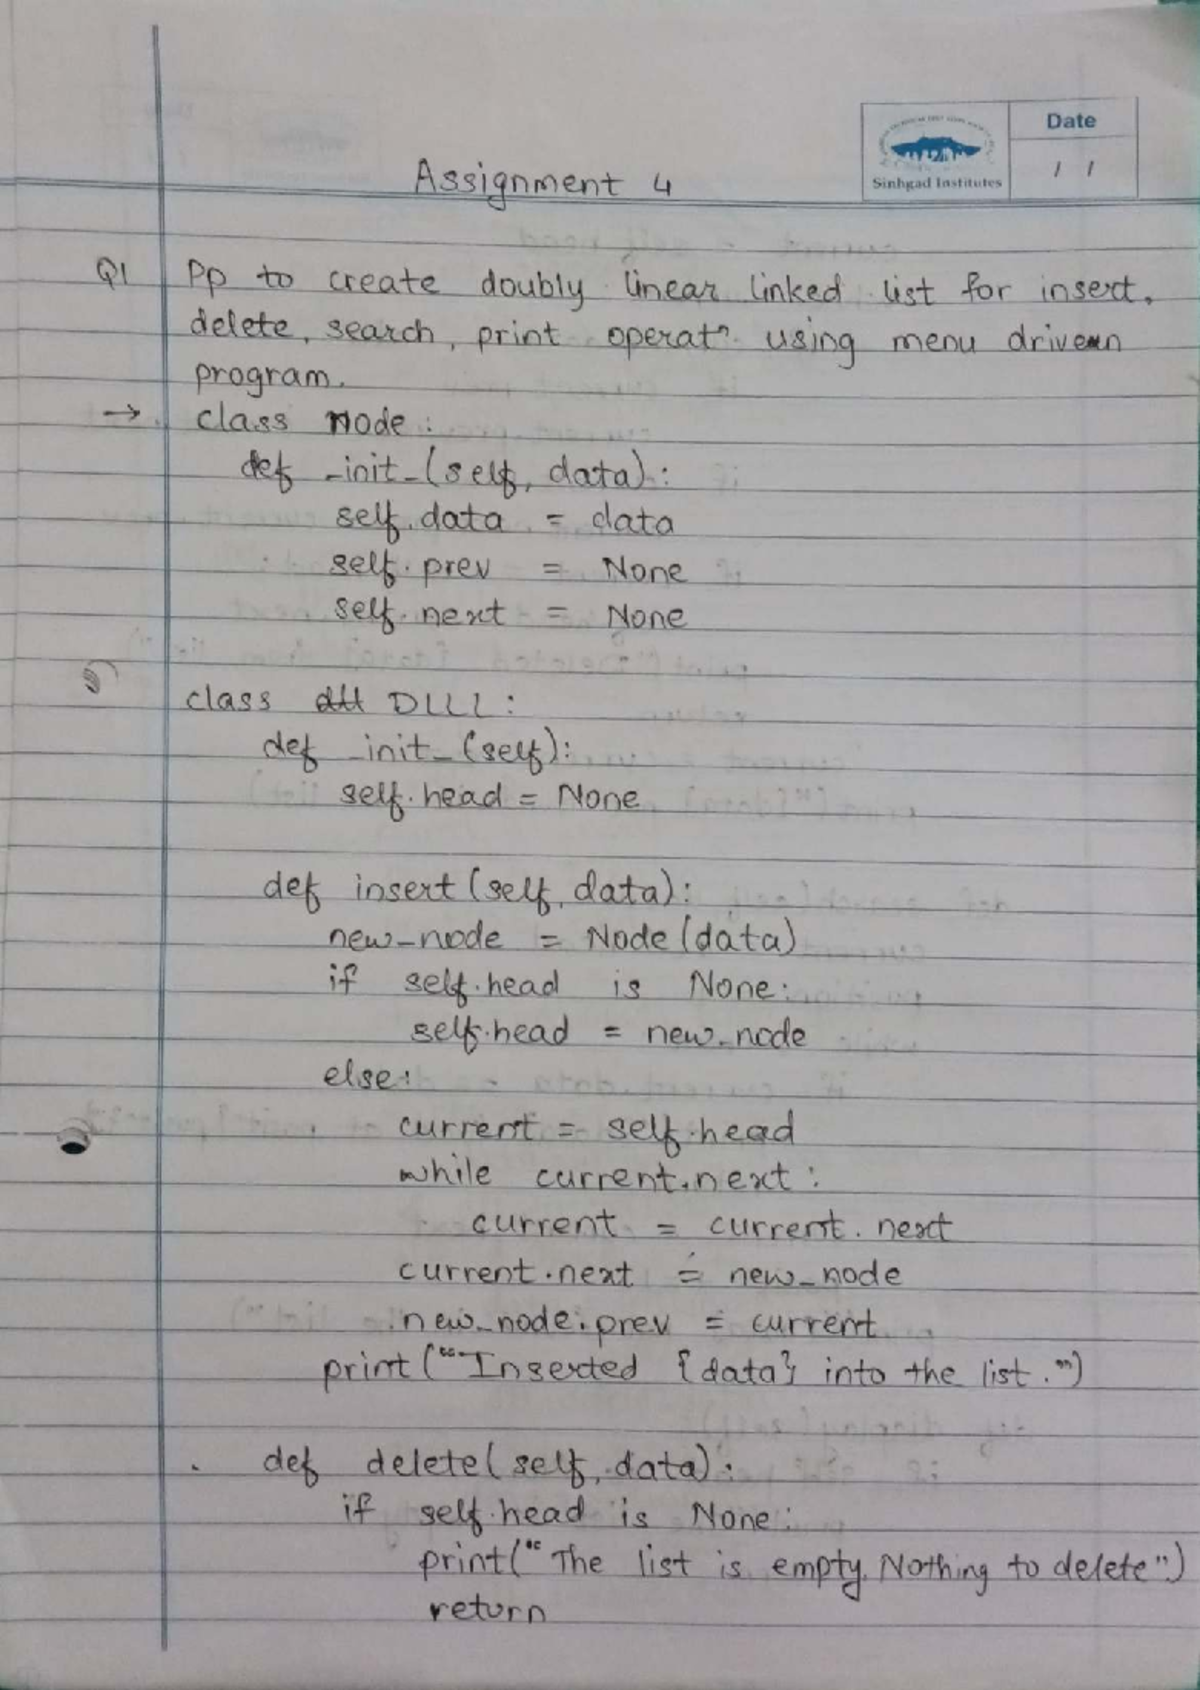 Sinhgad Institutes
Date
/ /
Assignment 4
Q1 Pp to create doubly linear linked list for insert,
delete, search, print operatn using menu driven
program.
→ class Node:
def _init_(self, data):
self.data = data
self.prev = None
self.next = None
class DLLL:
def _init_(self):
self.head = None
def insert(self, data):
new_node = Node(data)
if self.head is None:
self.head = new_node
else:
current = self.head
while current.next:
current = current.next
current.next = new_node
new_node.prev = current
print("Inserted {data} into the list.")
def delete(self, data):
if self.head is None:
print("The list is empty. Nothing to delete")
return